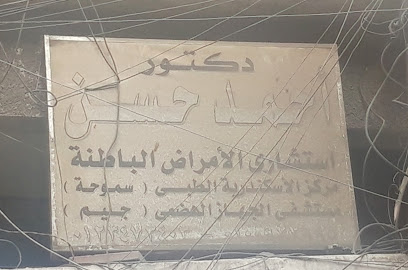 دكتور
احمد حسن
استشارى الأمراض الباطنة
مركز الاسكندرية الطبى ( سموحة )
مستشفى الجهاز الهضمى ( جليم )